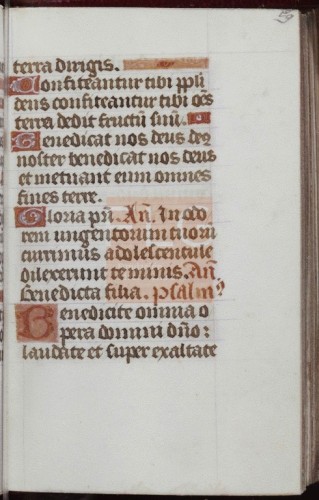 terra dirigis.
Confiteantur tibi ppli
deus confiteantur tibi oēs
terra dedit fructū suū.
Benedicat nos deus deꝰ
noster benedicat nos deus
et metuant eum omnes
fines terre.
Gloria pri. Añ. In odo
rem ungentorum tuorū
currimus adolescentule
dilexerunt te nimis. Añ
Benedicta filia. psalmꝰ
Benedicite omnia o
pera domini dño:
laudate et super exaltate